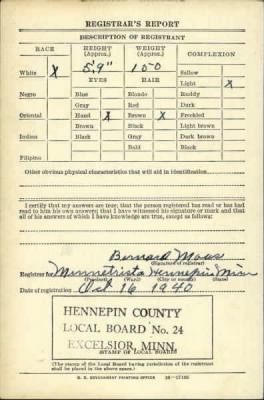 REGISTRAR'S REPORT
DESCRIPTION OF REGISTRANT
RACE HEIGHT (Approx.) WEIGHT (Approx.) COMPLEXION
White X 5'9" 150 Sallow
EYES HAIR Light X
Negro Blue Blonde Ruddy
Gray Red Dark
Oriental Hazel X Brown X Freckled
Brown Black Light brown
Indian Black Gray Dark brown
Bald Black
Filipino
Other obvious physical characteristics that will aid in identification
I certify that my answers are true; that the person registered has read or has had
read to him his own answers; that I have witnessed his signature or mark and that
all of his answers of which I have knowledge are true, except as follows:
Bernard Maas
(Signature of registrar)
Registrar for Minnetrista Hennepin Minn
(Ward) (City or county) (State)
Date of registration Oct 16 1940
HENNEPIN COUNTY
LOCAL BOARD No. 24
EXCELSIOR, MINN.
(STAMP OF LOCAL BOARD)
(The stamp of the Local Board having jurisdiction of the registrant
shall be placed in the above space.)
U. S. GOVERNMENT PRINTING OFFICE 16—17105